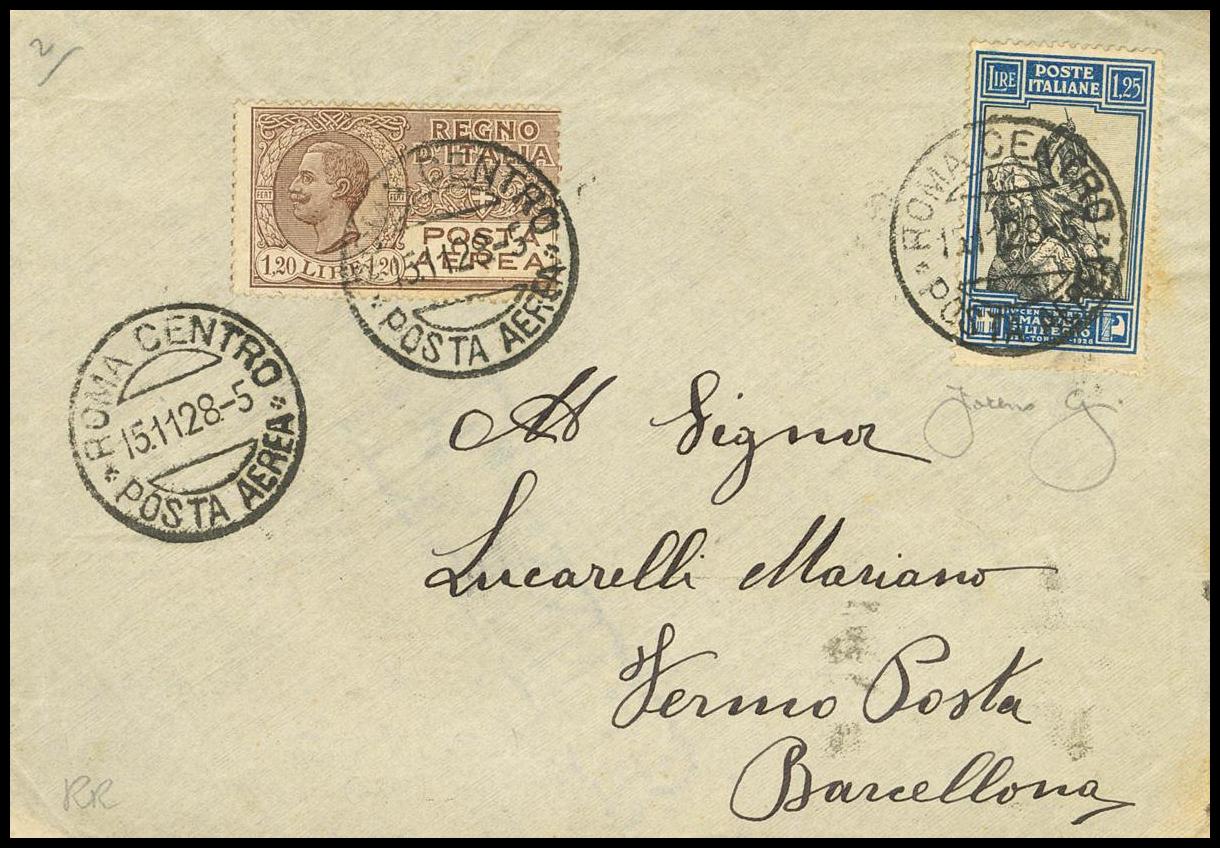 2/
REGNO
D'ITALIA
CENT
CENT
POSTA
AEREA
1,20 LIRE 1,20
LIRE
POSTE
ITALIANE
1,25
EMAN
FILIBERTO
ROMA CENTRO
15.11.28-5
* POSTA AEREA *
CENTRO
15.11.28-5
* POSTA AEREA *
* ROMA CENTRO *
15.11.28-5
POSTA
Al Signor
Lucarelli Mariano
Fermo Posta
Barcellona
RR